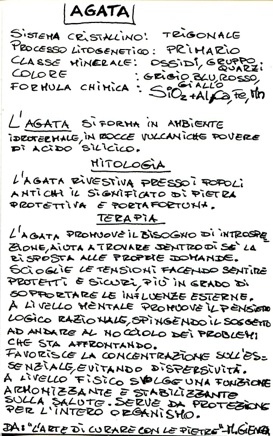 AGATA
SISTEMA CRISTALLINO: TRIGONALE
PROCESSO LITOGENETICO: PRIMARIO
CLASSE MINERALE: OSSIDI, GRUPPO QUARZI
COLORE : GRIGIO, BLU, ROSSO, GIALLO
FORMULA CHIMICA : SiO2 + Al, Ca, Fe, Mn
L'AGATA SI FORMA IN AMBIENTE
IDROTERMALE, IN ROCCE VULCANICHE POVERE
DI ACIDO SILICICO.
MITOLOGIA
L'AGATA RIVESTIVA PRESSO I POPOLI
ANTICHI IL SIGNIFICATO DI PIETRA
PROTETTIVA E PORTAFORTUNA.
TERAPIA
L'AGATA PROMUOVE IL BISOGNO DI INTROSPE-
ZIONE, AIUTA A TROVARE DENTRO DI SÉ LA
RISPOSTA ALLE PROPRIE DOMANDE.
SCIOGLIE LE TENSIONI FACENDO SENTIRE
PROTETTI E SICURI, PIÙ IN GRADO DI
SOPPORTARE LE INFLUENZE ESTERNE.
A LIVELLO MENTALE PROMUOVE IL PENSIERO
LOGICO RAZIONALE, SPINGENDO IL SOGGETTO
AD ANDARE AL NOCCIOLO DEI PROBLEMI
CHE STA AFFRONTANDO.
FAVORISCE LA CONCENTRAZIONE SULL'ES-
SENZIALE, EVITANDO DISPERSIVITÀ.
A LIVELLO FISICO SVOLGE UNA FUNZIONE
ARMONIZZANTE E STABILIZZANTE
SULLA SALUTE. SERVE DA PROTEZIONE
PER L'INTERO ORGANISMO.
DA: "L'ARTE DI CURARE CON LE PIETRE" M. GIENGER